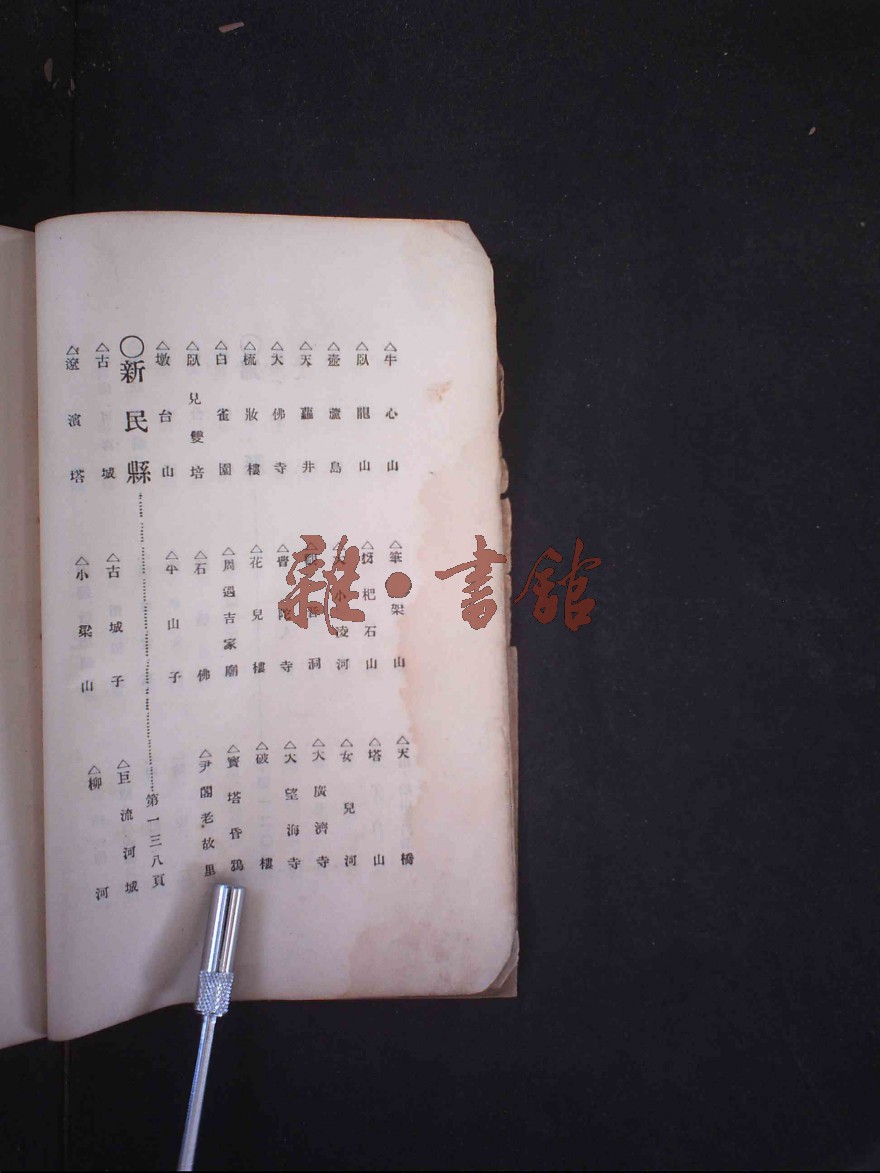 △牛心山 △筆架山 △天橋
△臥龍山 △杷石山 △塔山
△壺瀘島 △大小凌河 △女兒河
△天蘿井 △觀音洞 △大廣濟寺
△大佛寺 △普陀寺 △大望海寺
△梳妝樓 △花兒樓 △破樓
△白雀園 △周遇吉家廟 △寶塔昏鴉
△臥兒雙培 △石佛 △尹閣老故里
△墩台山 △山子
○新民縣……第一三八頁
△古城 △古城子 △巨流河城
△遼濱塔 △小梁山 △柳河
雜·書館